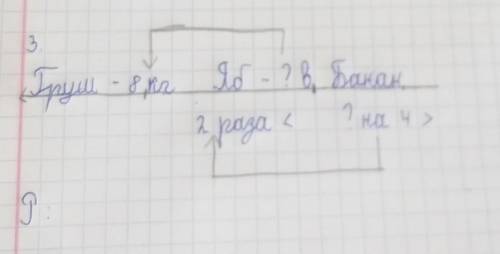 3.
Груш - 8 кг Яб - ? в, Банан
2 раза < ? на 4 >
Р: